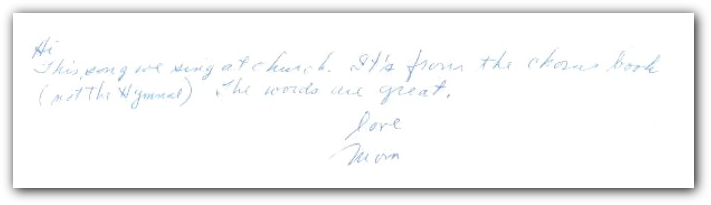 Hi
This song we sing at church. It's from the chorus book
(not the Hymnal) The words are great.
love
Mom